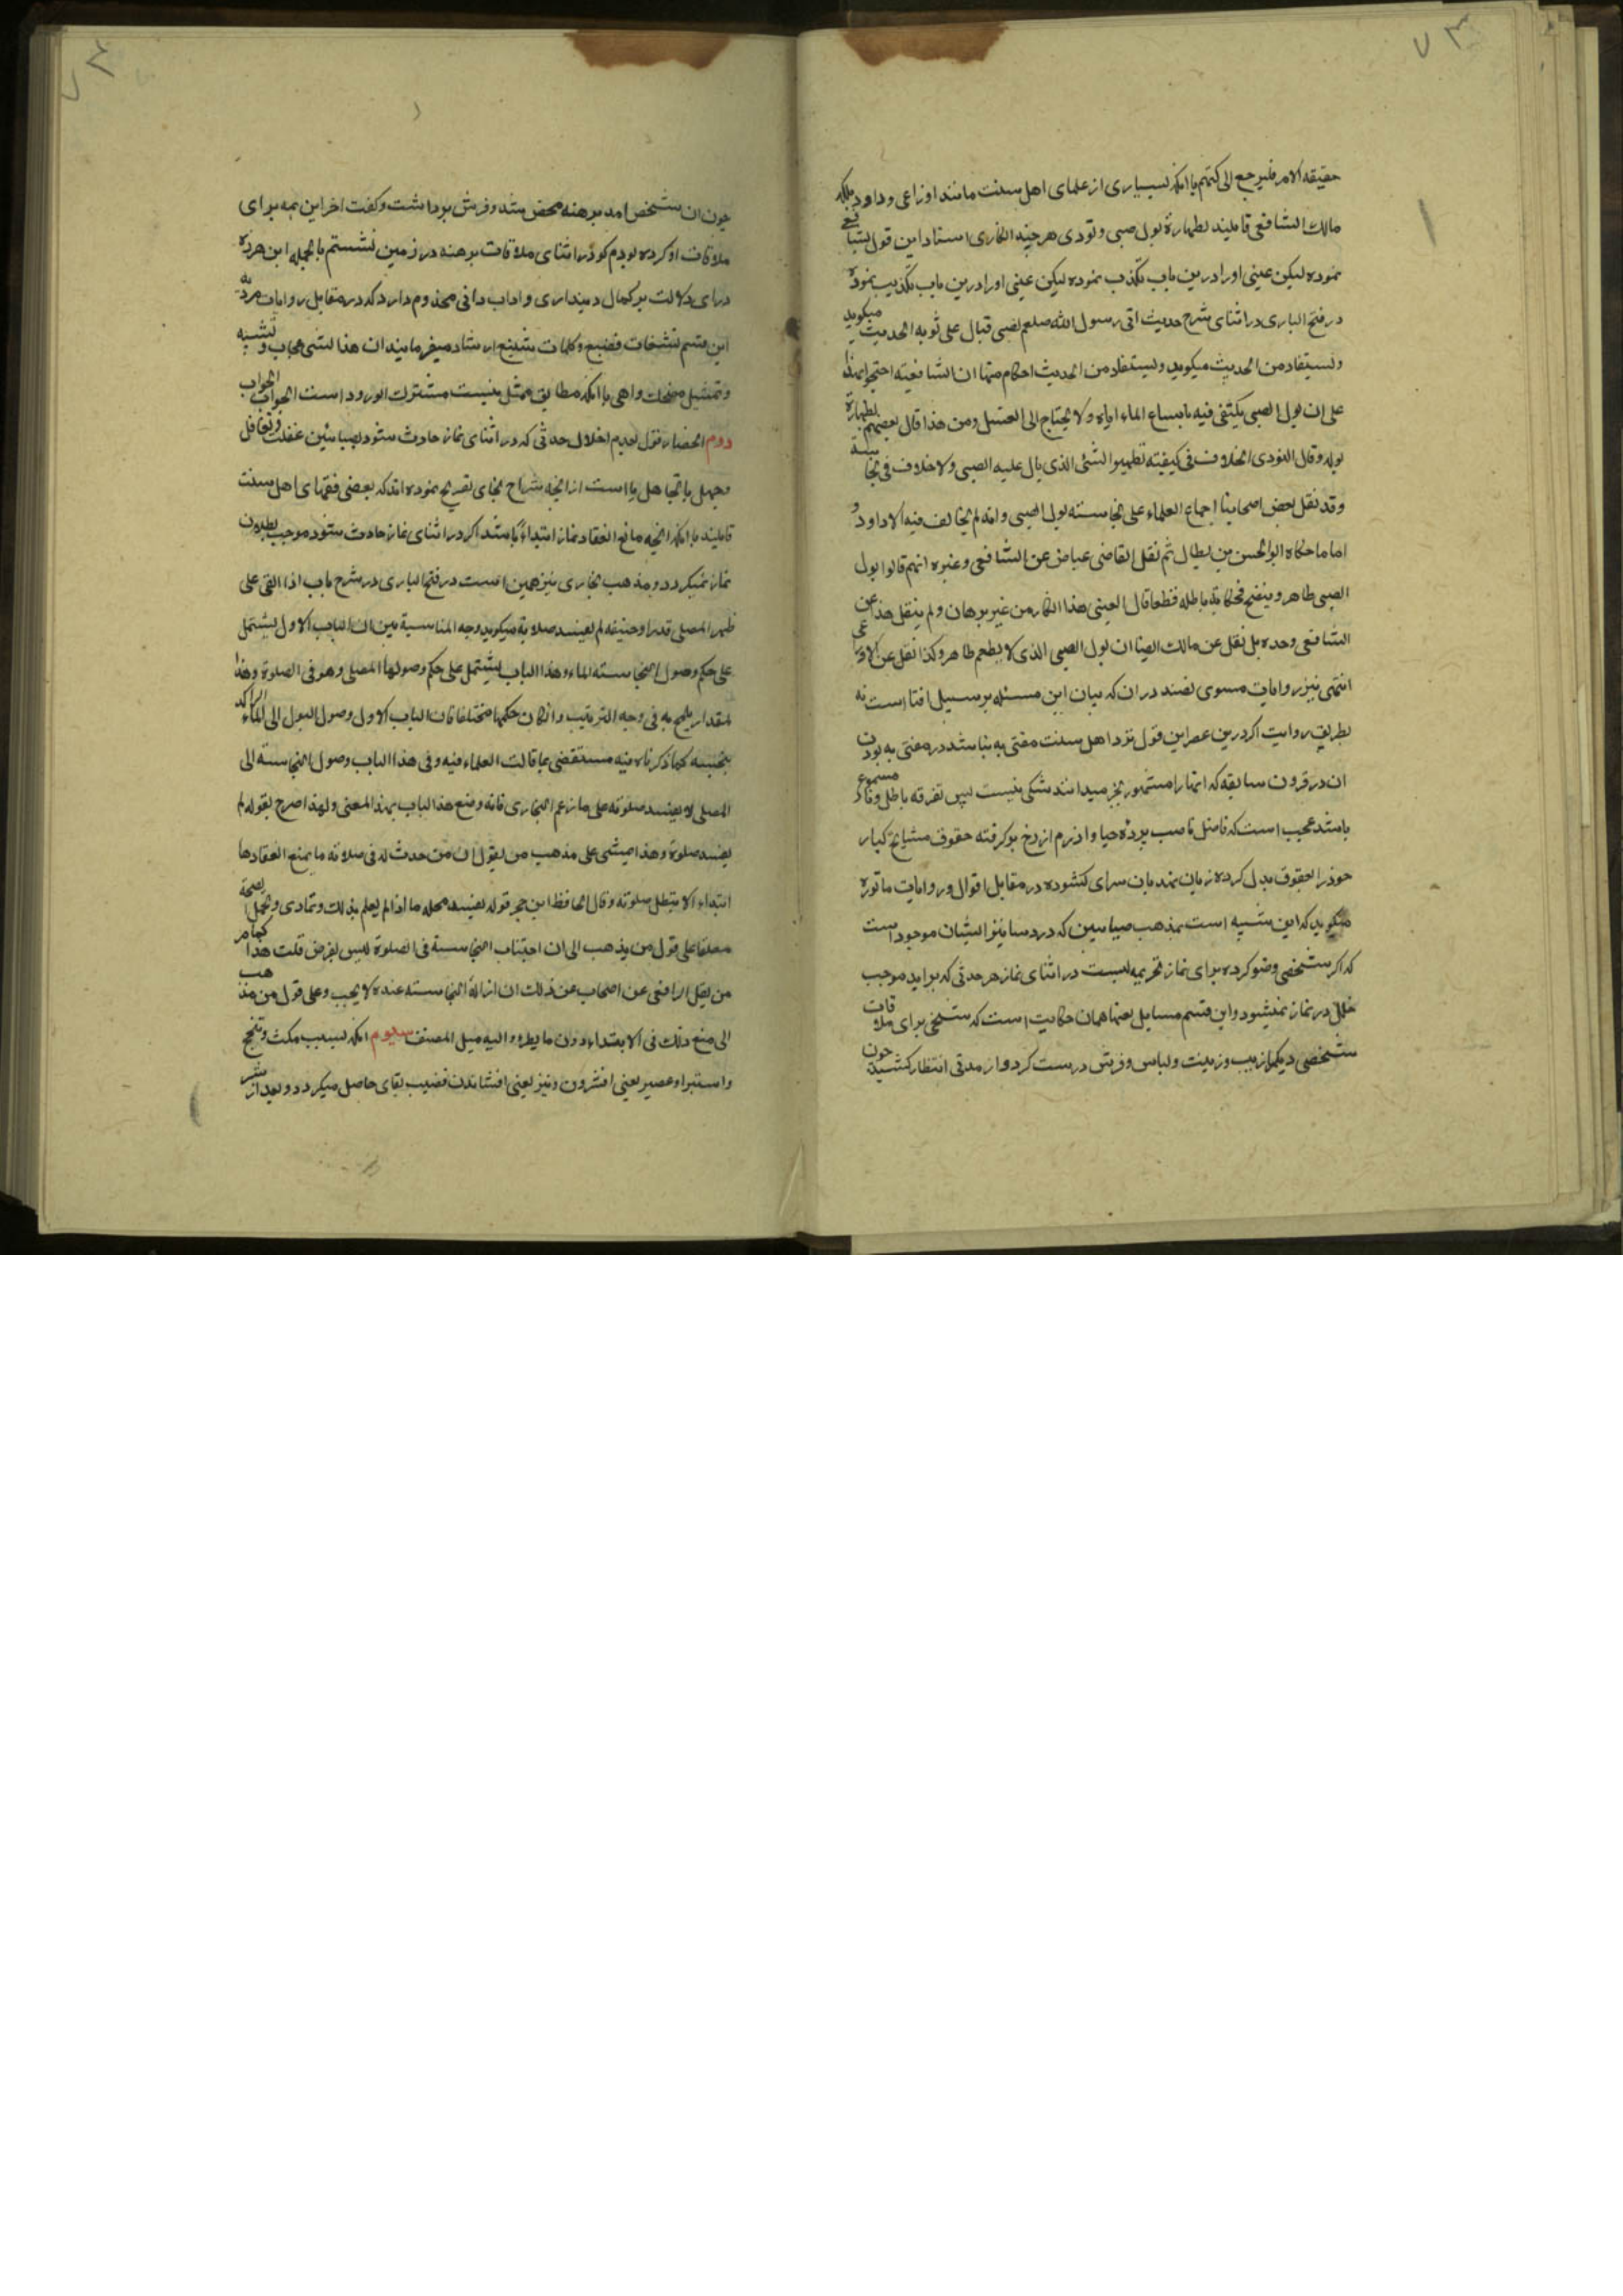 ۷۳
حقیقه الامر فلیرجع الی کتبهم با انکه بسیاری از علمای اهل سنت مانند اوزاعی و داود بلکه
مالک الشافعی قایلند بطهارة بول صبی و نودی هر چند انکاری استناد این قول بشافعی
نموده لیکن عینی او را درین باب تکذب نموده لیکن عینی او را درین باب تکذیب نموده
در فتح الباری در اثنای شرح حدیث اتی رسول الله صلعم بصبی فبال علی ثوبه الحدیث میکوید
و یستفاد من الحدیث میکوید و یستفاد من الحدیث احکام منها ان الشافعیه احتجوا بهذا
علی ان بول الصبی یکتفی فیه باتباع الماء ایاه ولا یحتاج الی الغسل ومن هذا قال بعضهم بطهارة
بوله وقال النودی الخلاف فی کیفیته تطهیر الشئ الذی بال علیه الصبی ولا خلاف فی نجاسته
وقد نقل بعض اصحابنا اجماع العلماء علی نجاسته بول الصبی وانه لم یخالف فیه الا داود و
اما ما حکاه ابو الحسن بن بطال ثم نقل القاضی عیاض عن الشافعی وغیره انهم قالوا بول
الصبی طاهر وینضح فحکایة باطله قطعا قال العینی هذا انکار من غیر برهان ولم ینقل هذا عن
الشافعی وحده بل نقل عن مالک ایضا ان بول الصبی الذی لا یطعم طاهر وکذا نقل عن الاوزاعی
انتهی نیز روایات مسوی نضند دران که بیان این مسئله بر سبیل افتا است نه
بطریق روایت اکر درین عصر این قول نزد اهل سنت مفتی به نباشد در مفتی به بودن
ان در قرون سابقه که انها را مشهور بخیر میدانند شکی نیست پس تفرقه باطل و نا مسموع
باشد عجیب است که فاضل ناصب پرده حیا و اذرم از رخ بر کرفته حقوق مشایخ کبار
خود را بعقوق بدل کرده زبان بهذیان سرای کشوده در مقابل اقوال و روایات ماثوره
میکوید که این شبیه است بمذهب صبایین که در دساتیر ایشان موجود است
که اکر شخصی وضو کرده برای نماز تحریمه بست در اثنای نماز هر حدثی که براید موجب
خلل در نماز نمیشود و این قسم مسایل بعینها همان حکایت است که شخصی برای ملاقات
شخصی دیکر از زیب و زینت و لباس و فرش درست کرد و از مدتی انتظار کشید چون
۷۴
چون ان شخص امد برهنه محض شد و فرش برداشت و کفت اخر این همه برای
ملاقات او کرده بودم کو در اثنای ملاقات برهنه در زمین نشستم بالجمله این هرزه
درای دلالت بر کمال دینداری و اداب دانی مخدوم دارد که در مقابل روایات مرویه
این قسم تشنیعات فضیع و کلمات شنیع ارشاد میفرمایند ان هذا لشی عجاب و تشبیه
و تمثیل مضحک و اهی با انکه مطابق ممثل نیست مشترک الورود است الجواب الجواب
دوم انحصار قول بعدم اخلال حدثی که در اثنای نماز حادث شود بصبایین غفلت و تغافل
و جهل یا تجاهل یا است از انچه شراح بخاری تصریح نموده اند که بعضی فقهای اهل سنت
قایلند با انکه انچه مانع انعقاد نماز ابتداءً باشد اکر در اثنای نماز حادث شود موجب بطلان
نماز نمیکردد و مذهب بخاری نیز همین است در فتح الباری در شرح باب اذا القی علی
ظهر المصلی قذر او جیفه لم یفسد صلاته میکوید وجه المناسبة بین ان الباب الاول یشتمل
علی حکم وصول النجاسته الماء وهذا الباب یشتمل علی حکم وصولها المصلی وهو فی الصلوة وهذا
المقدار یلمح به فی وجه الترتیب وان کان حکمها مختلفا فان الباب الاول وصول البول الی الماء الراکد
ینجسه کما ذکرناه فیه مستقضی بما قالت العلماء فیه وفی هذا الباب وصول النجاسته الی
المصلی لا یفسد صلوته علی ما زعم البخاری فانه وضع هذا الباب بهذا المعنی ولهذا صرح بقوله لم
یفسد صلوة وهذا یمشی علی مذهب من یقول ان من حدث له فی صلاته ما یمنع انعقادها
ابتداء لا تبطل صلوته وقال الحافظ ابن حجر قوله یفسد محله ما اذا لم یعلم بذلک وتمادی ویحتمل الصحة
مطلقا علی قول من یذهب الی ان اجتناب النجاسته فی الصلوة لیس بفرض قلت هذا کما مر
من نقل الرافعی عن اصحاب عن ذلک ان ازالة النجاسته عنده لا یجب وعلی قول من مذهب
الی منع ذلک فی الابتداء دون ما یطرء والیه میل المصنف سیوم انکه بسبب مکث و تنحنح
و استبرا و عصیر یعنی افشردن و نیز یعنی افشاندن قضیب نقای حاصل میکردد و بعد از